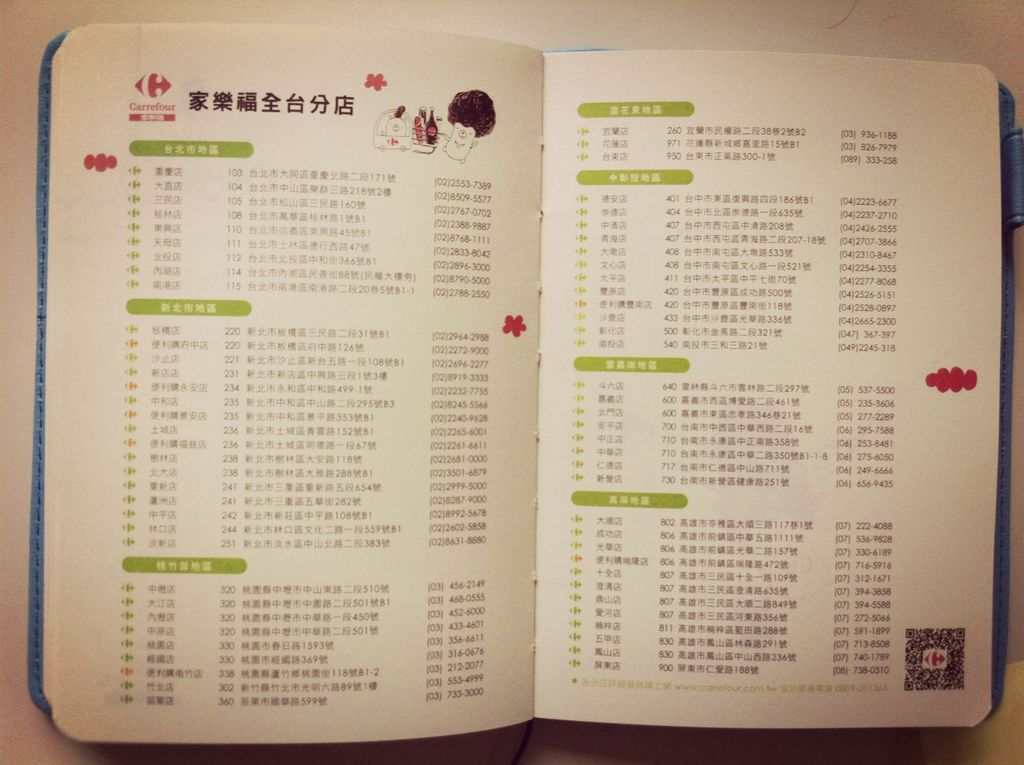 Carrefour
家樂福
家樂福全台分店
台北市地區
重慶店 103 台北市大同區重慶北路二段171號 (02)2553-7389
大直店 104 台北市中山區樂群三路218號2樓 (02)8509-5577
三民店 105 台北市松山區三民路160號 (02)2767-0702
桂林店 108 台北市萬華區桂林路1號B1 (02)2388-9887
東興店 110 台北市信義區東興路45號B1 (02)8768-1111
天母店 111 台北市士林區德行西路47號 (02)2833-8042
北投店 112 台北市北投區中和街366號B1 (02)2896-3000
內湖店 114 台北市內湖區民善街88號(民權大樓旁) (02)8790-5000
南港店 115 台北市南港區南港路二段20巷5號B1-1 (02)2788-2550
新北市地區
板橋店 220 新北市板橋區三民路二段31號B1 (02)2964-2988
便利購府中店 220 新北市板橋區府中路126號 (02)2272-9000
汐止店 221 新北市汐止區新台五路一段108號B1 (02)2696-2277
新店店 231 新北市新店區中興路三段1號3樓 (02)8919-3333
便利購永安店 234 新北市永和區中和路499-1號 (02)2232-7755
中和店 235 新北市中和區中山路二段295號B3 (02)8245-5566
便利購景安店 235 新北市中和區景平路353號B1 (02)2240-9628
土城店 236 新北市土城區青雲路152號B1 (02)2265-6001
便利購福益店 236 新北市土城區明德路一段67號 (02)2261-6611
樹林店 238 新北市樹林區大安路118號 (02)2681-0000
北大店 238 新北市樹林區大雅路288號B1 (02)3501-6879
重新店 241 新北市三重區重新路五段654號 (02)2999-5000
蘆洲店 241 新北市三重區五華街282號 (02)8287-9000
中平店 242 新北市新莊區中平路108號B1 (02)8992-5678
林口店 244 新北市林口區文化二路一段559號B1 (02)2602-5858
淡新店 251 新北市淡水區中山北路二段383號 (02)8631-8880
桃竹苗地區
中壢店 320 桃園縣中壢市中山東路二段510號 (03) 456-2149
大江店 320 桃園縣中壢市中園路二段501號B1 (03) 468-0555
內壢店 320 桃園縣中壢市中華路一段450號 (03) 452-6000
中原店 320 桃園縣中壢市中華路二段501號 (03) 433-4601
桃園店 330 桃園市春日路1593號 (03) 356-6611
經國店 330 桃園市經國路369號 (03) 316-0676
便利購南竹店 338 桃園縣蘆竹鄉桃園街118號B1-2 (03) 212-2077
竹北店 302 新竹縣竹北市光明六路89號1樓 (03) 553-4999
苗栗店 360 苗栗市國華路599號 (03) 733-3000
宜花東地區
宜蘭店 260 宜蘭市民權路二段38巷2號B2 (03) 936-1188
花蓮店 971 花蓮縣新城鄉嘉里路15號B1 (03) 826-7979
台東店 950 台東市正氣路300-1號 (089) 333-258
中彰投地區
德安店 401 台中市東區復興路四段186號B1 (04)2223-6677
崇德店 404 台中市北區崇德路一段635號 (04)2237-2710
中清店 407 台中市西屯區中清路208號 (04)2426-2555
青海店 407 台中市西屯區青海路二段207-18號 (04)2707-3866
大墩店 408 台中市南屯區大墩路533號 (04)2310-8467
文心店 408 台中市南屯區文心路一段521號 (04)2254-3355
太平店 411 台中市太平區中平七街70號 (04)2277-8068
豐原店 420 台中市豐原區成功路500號 (04)2526-5151
便利購豐南店 420 台中市豐原豐南街118號 (04)2528-0897
沙鹿店 433 台中市沙鹿區光華路336號 (04)2665-2300
彰化店 500 彰化市金馬路二段321號 (047) 367-397
南投店 540 南投市三和三路21號 (049)2245-318
雲嘉南地區
斗六店 640 雲林縣斗六市雲林路二段297號 (05) 537-5500
嘉義店 600 嘉義市西區博愛路二段461號 (05) 235-3606
北門店 600 嘉義市東區忠孝路346巷21號 (05) 277-2289
安平店 700 台南市中西區中華西路二段16號 (06) 295-7588
中正店 710 台南市永康區中正南路358號 (06) 253-8481
中華店 710 台南市永康區中華二路350號B1-1-8 (06) 275-6050
仁德店 717 台南市仁德區中山路711號 (06) 249-6666
新營店 730 台南市新營區健康路251號 (06) 656-9435
高屏地區
大順店 802 高雄市苓雅區大順三路117巷1號 (07) 222-4088
成功店 806 高雄市前鎮區中華五路1111號 (07) 536-9828
光華店 806 高雄市前鎮區光華二路157號 (07) 330-6189
便利購瑞隆店 806 高雄市前鎮區瑞隆路472號 (07) 716-5916
十全店 807 高雄市三民區十全一路109號 (07) 312-1671
澄清店 807 高雄市三民區澄清路635號 (07) 394-3858
鼎山店 807 高雄市三民區大順二路849號 (07) 394-5588
愛河店 807 高雄市三民區河東路356號 (07) 272-5066
楠梓店 811 高雄市楠梓區藍田路288號 (07) 591-1899
五甲店 830 高雄市鳳山區林森路291號 (07) 713-8508
鳳山店 830 高雄市鳳山區中山西路236號 (07) 740-1789
屏東店 900 屏東市仁愛路188號 (08) 738-0310
各分店詳細資訊請上網 www.carrefour.com.tw 或洽服務專線 0809-001365